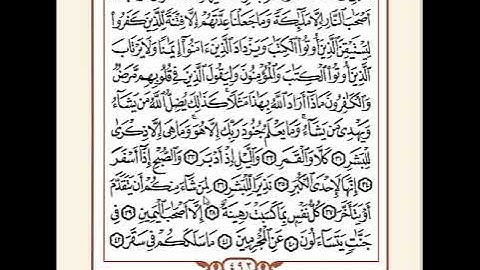 أَصْحَٰبَ ٱلنَّارِ إِلَّا مَلَٰٓئِكَةً وَمَا جَعَلْنَا عِدَّتَهُمْ إِلَّا فِتْنَةً لِّلَّذِينَ كَفَرُوا۟
لِيَسْتَيْقِنَ ٱلَّذِينَ أُوتُوا۟ ٱلْكِتَٰبَ وَيَزْدَادَ ٱلَّذِينَ ءَامَنُوٓا۟ إِيمَٰنًا وَلَا يَرْتَابَ
ٱلَّذِينَ أُوتُوا۟ ٱلْكِتَٰبَ وَٱلْمُؤْمِنُونَ وَلِيَقُولَ ٱلَّذِينَ فِى قُلُوبِهِم مَّرَضٌ
وَٱلْكَٰفِرُونَ مَاذَآ أَرَادَ ٱللَّهُ بِهَٰذَا مَثَلًا كَذَٰلِكَ يُضِلُّ ٱللَّهُ مَن يَشَآءُ
وَيَهْدِى مَن يَشَآءُ وَمَا يَعْلَمُ جُنُودَ رَبِّكَ إِلَّا هُوَ وَمَا هِىَ إِلَّا ذِكْرَىٰ
لِلْبَشَرِ ٣١ كَلَّا وَٱلْقَمَرِ ٣٢ وَٱلَّيْلِ إِذْ أَدْبَرَ ٣٣ وَٱلصُّبْحِ إِذَآ أَسْفَرَ
٣٤ إِنَّهَا لَإِحْدَى ٱلْكُبَرِ ٣٥ نَذِيرًا لِّلْبَشَرِ ٣٦ لِمَن شَآءَ مِنكُمْ أَن يَتَقَدَّمَ
أَوْ يَتَأَخَّرَ ٣٧ كُلُّ نَفْسٍۭ بِمَا كَسَبَتْ رَهِينَةٌ ٣٨ إِلَّآ أَصْحَٰبَ ٱلْيَمِينِ ٣٩ فِى
جَنَّٰتٍ يَتَسَآءَلُونَ ٤٠ عَنِ ٱلْمُجْرِمِينَ ٤١ مَا سَلَكَكُمْ فِى سَقَرَ ٤٢
٤٩٢